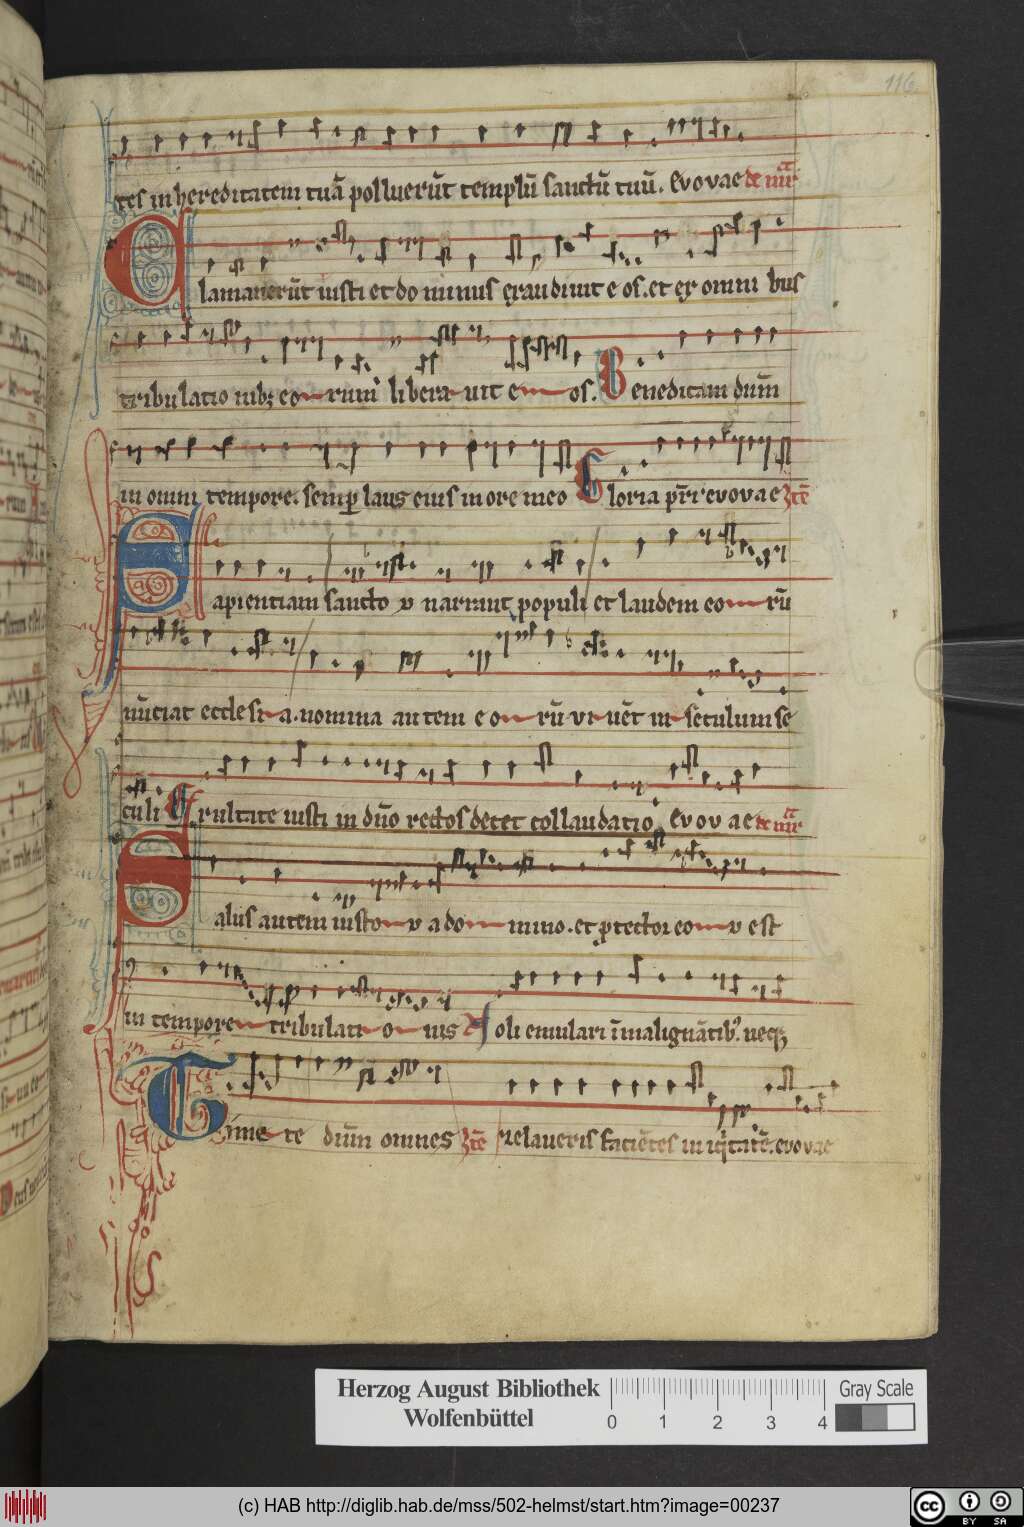 116
tes in hereditatem tuā polluerūt templū sanctū tuū. evovae de mr̄
Clamauerūt iusti et dominus exaudiuit eos. et ex omnibus
tribulationibꝫ eorum liberauit eos. Benedicam dūm
in omni tempore. semꝑ laus eius in ore meo Gloria pr̄i evovae
Sapientiam sanctoꝝ narrant populi et laudem eorū
nūciat ecclesia. nomina autem eorū viuēt in seculum se
culi Exultate iusti in dūo rectos decet collaudatio. evovae de mr̄
Salus autem iustoꝝ a domino. et ꝓtector eoꝝ est
in tempore tribulationis Noli emulari ī malignātibꝰ neqꝫ
Timete dūm omnes relaveris faciētes iniqͥtatē. evovae
Herzog August Bibliothek
Wolfenbüttel
0 1 2 3 4
Gray Scale
(c) HAB http://diglib.hab.de/mss/502-helmst/start.htm?image=00237
cc BY SA